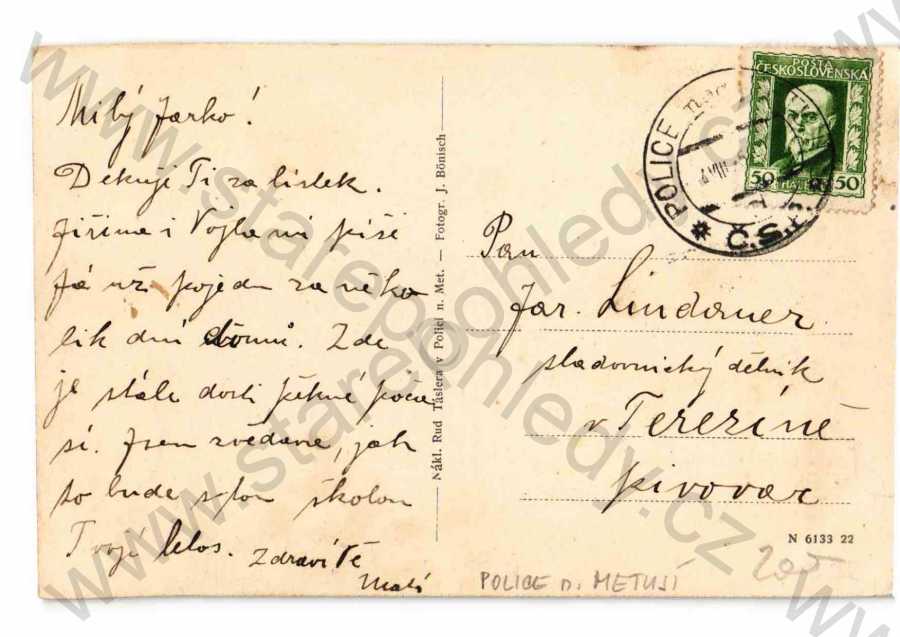 Milý Jarko!
Dekuji Ti za lístek.
Jiřina i Vojta mi píší
Já už pojedu za něko
lik dní domů. Zde
je stále dosti pěkné poča
sí. Jsem zvědava, jak
to bude s tou školou
Tvojí letos. Zdraví Tě
Nákl. Rud Táslera v Polici n. Met. — Fotogr. J. Bönisch
POŠTA
ČESKOSLOVENSKÁ
50 50
POLICE
Č.S.
Pan
Jar. Lindauer
sladovnický dělník
v Terezíně
pivovar
N 6133 22
POLICE n. METUJÍ
205
www.starepohledy.cz